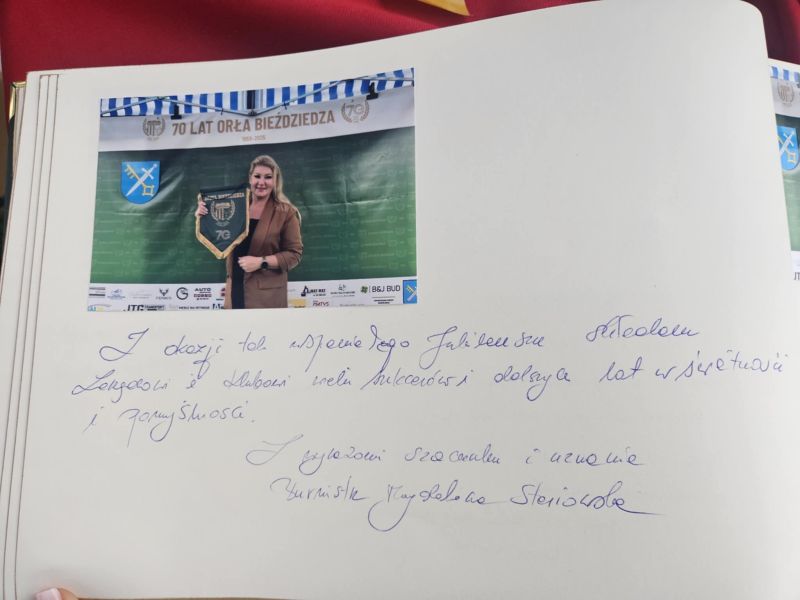 70 LAT ORŁA BIEŹDZIEDZA
70
ORZEŁ BIEŹDZIEDZA
70
AUTO
MAT-MAX
B&J BUD
JTG
Z okazji tak wspaniałego Jubileuszu składam
Zarządowi i Klubowi wielu sukcesów i dalszych lat w świetności
i pomyślności.
Z wyrazami szacunku i uznania
Burmistrz Magdalena
JTG